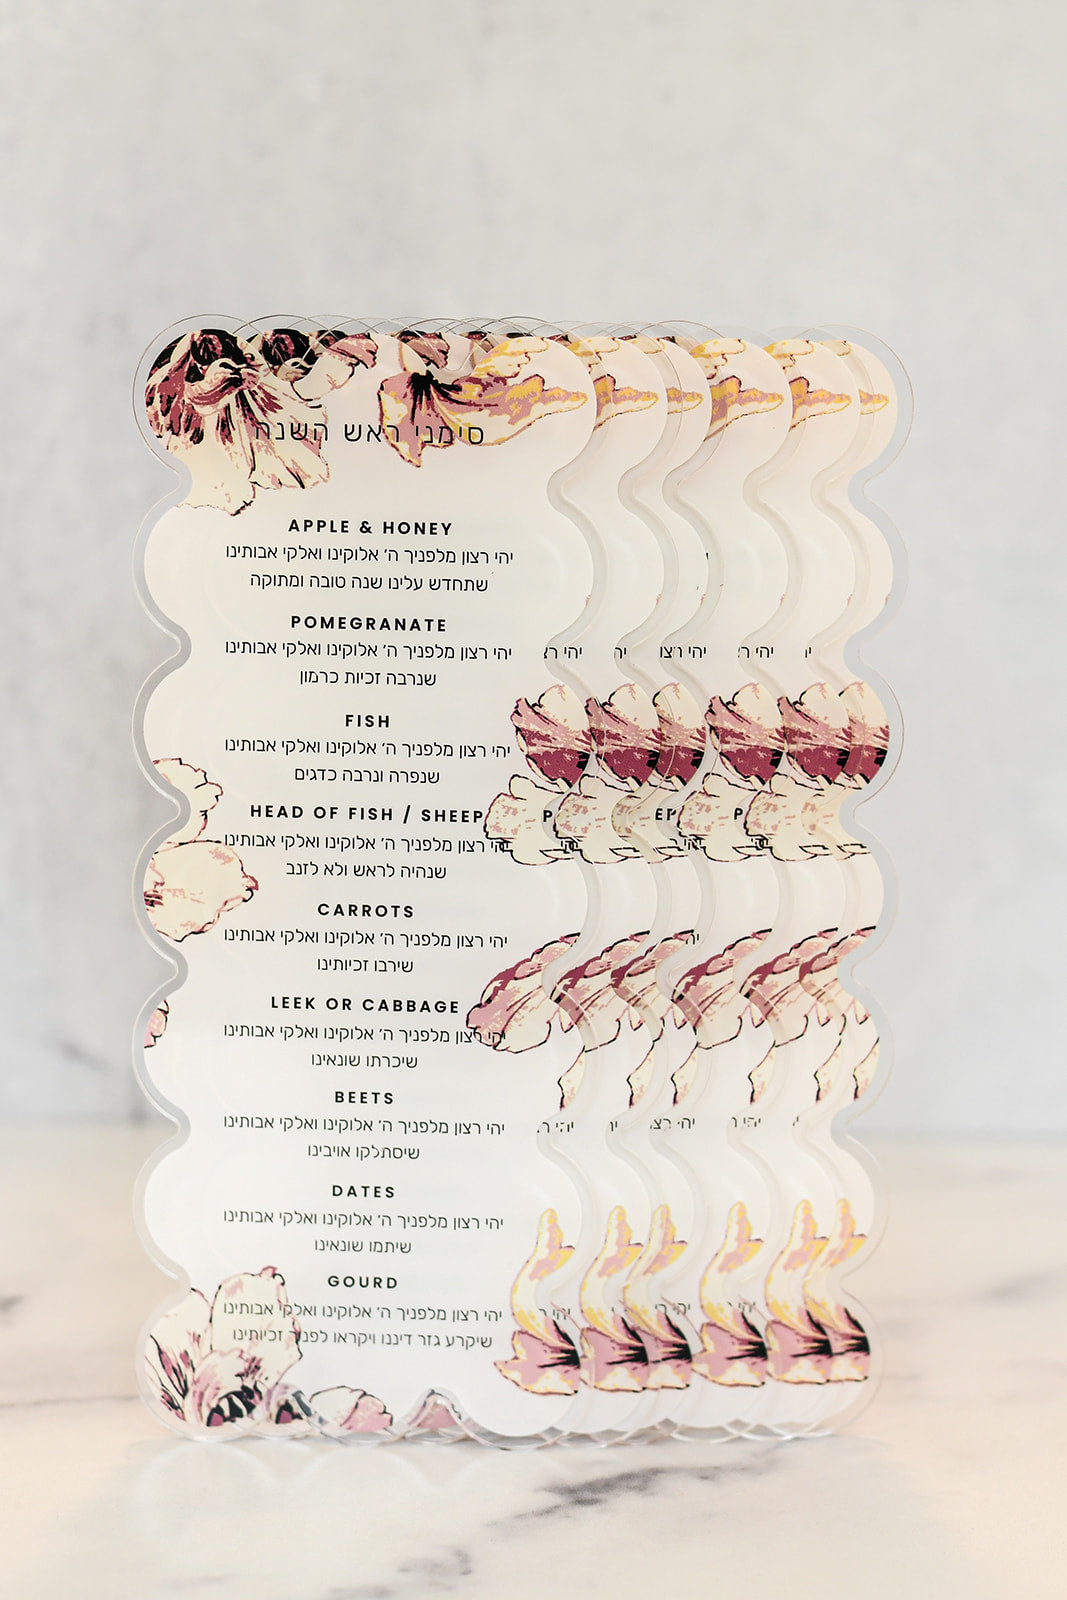 סימני ראש השנה
APPLE & HONEY
יהי רצון מלפניך ה׳ אלוקינו ואלקי אבותינו
שתחדש עלינו שנה טובה ומתוקה
POMEGRANATE
יהי רצון מלפניך ה׳ אלוקינו ואלקי אבותינו
שנרבה זכיות כרמון
FISH
יהי רצון מלפניך ה׳ אלוקינו ואלקי אבותינו
שנפרה ונרבה כדגים
HEAD OF FISH / SHEEP
יהי רצון מלפניך ה׳ אלוקינו ואלקי אבותינו
שנהיה לראש ולא לזנב
CARROTS
יהי רצון מלפניך ה׳ אלוקינו ואלקי אבותינו
שירבו זכיותינו
LEEK OR CABBAGE
יהי רצון מלפניך ה׳ אלוקינו ואלקי אבותינו
שיכרתו שונאינו
BEETS
יהי רצון מלפניך ה׳ אלוקינו ואלקי אבותינו
שיסתלקו אויבינו
DATES
יהי רצון מלפניך ה׳ אלוקינו ואלקי אבותינו
שיתמו שונאינו
GOURD
יהי רצון מלפניך ה׳ אלוקינו ואלקי אבותינו
שיקרע גזר דיננו ויקראו לפניך זכיותינו